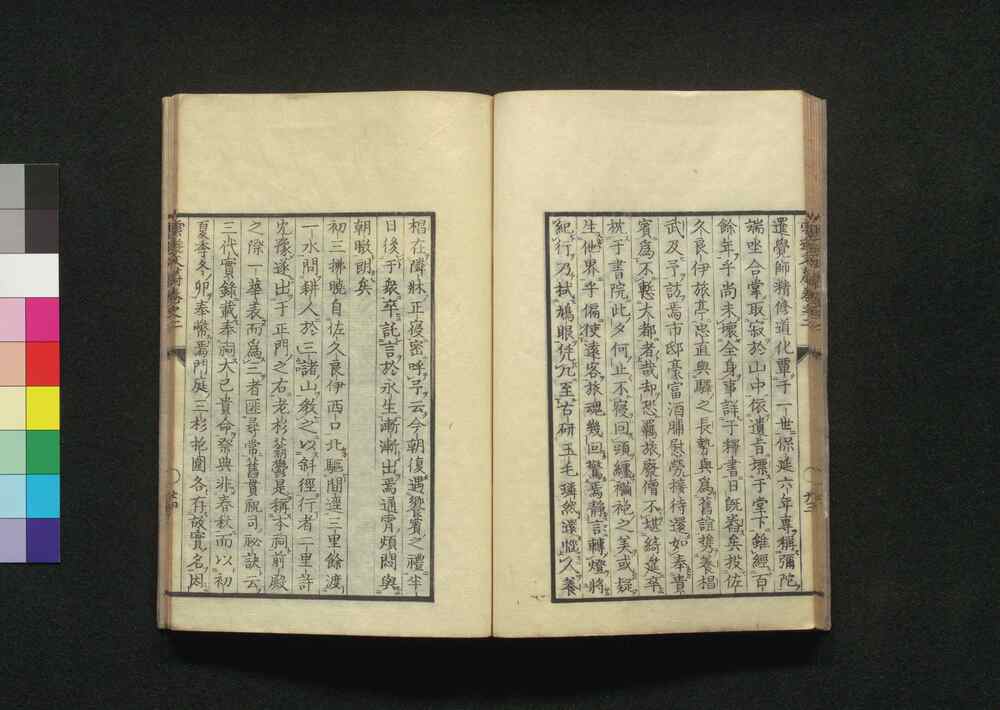 還覺師精修道化覃于一世保延六年專稱彌陀
端坐合掌取寂於山中依遺旨壜于堂下雖經百
餘年乎尚未壞全身事詳于釋書日既暮矣投佐
久良伊旅亭忠直與驛之長勢與爲舊誼携養楫
武及予訪焉市邸豪富酒脯慰勞接待還如奉貴
賓爲不慙大都者哉却恐羈旅廢僧不堪綺筵卒
枕于書院此夕何止不寢回頭纏襤袍之美或疑
生他界乎偏使遠客旅魂幾回驚焉靜言轉燈將
紀行乃拭鳩眼凭几至古研玉毛璘然遂惱人養
楫在隣牀正寢密呼予云今朝復遇饗賓之禮半
日後于衆卒託言於永生漸漸出焉通霄煩悶與
朝暾朗矣
初三拂曉自佐久良伊西口北驅間違三里餘渡
一水問耕人於三諸山教之以斜徑行者二里許
尤豫遂出于正門之右老杉蓊鬱是稱本祠前殿
之際一華表而爲三者匪尋常舊貫祝司祕訣云
三代實錄載奉祠大己貴命祭典非春秋而以初
夏季冬卯奉幣焉門庭三杉抱圍各存故實名因